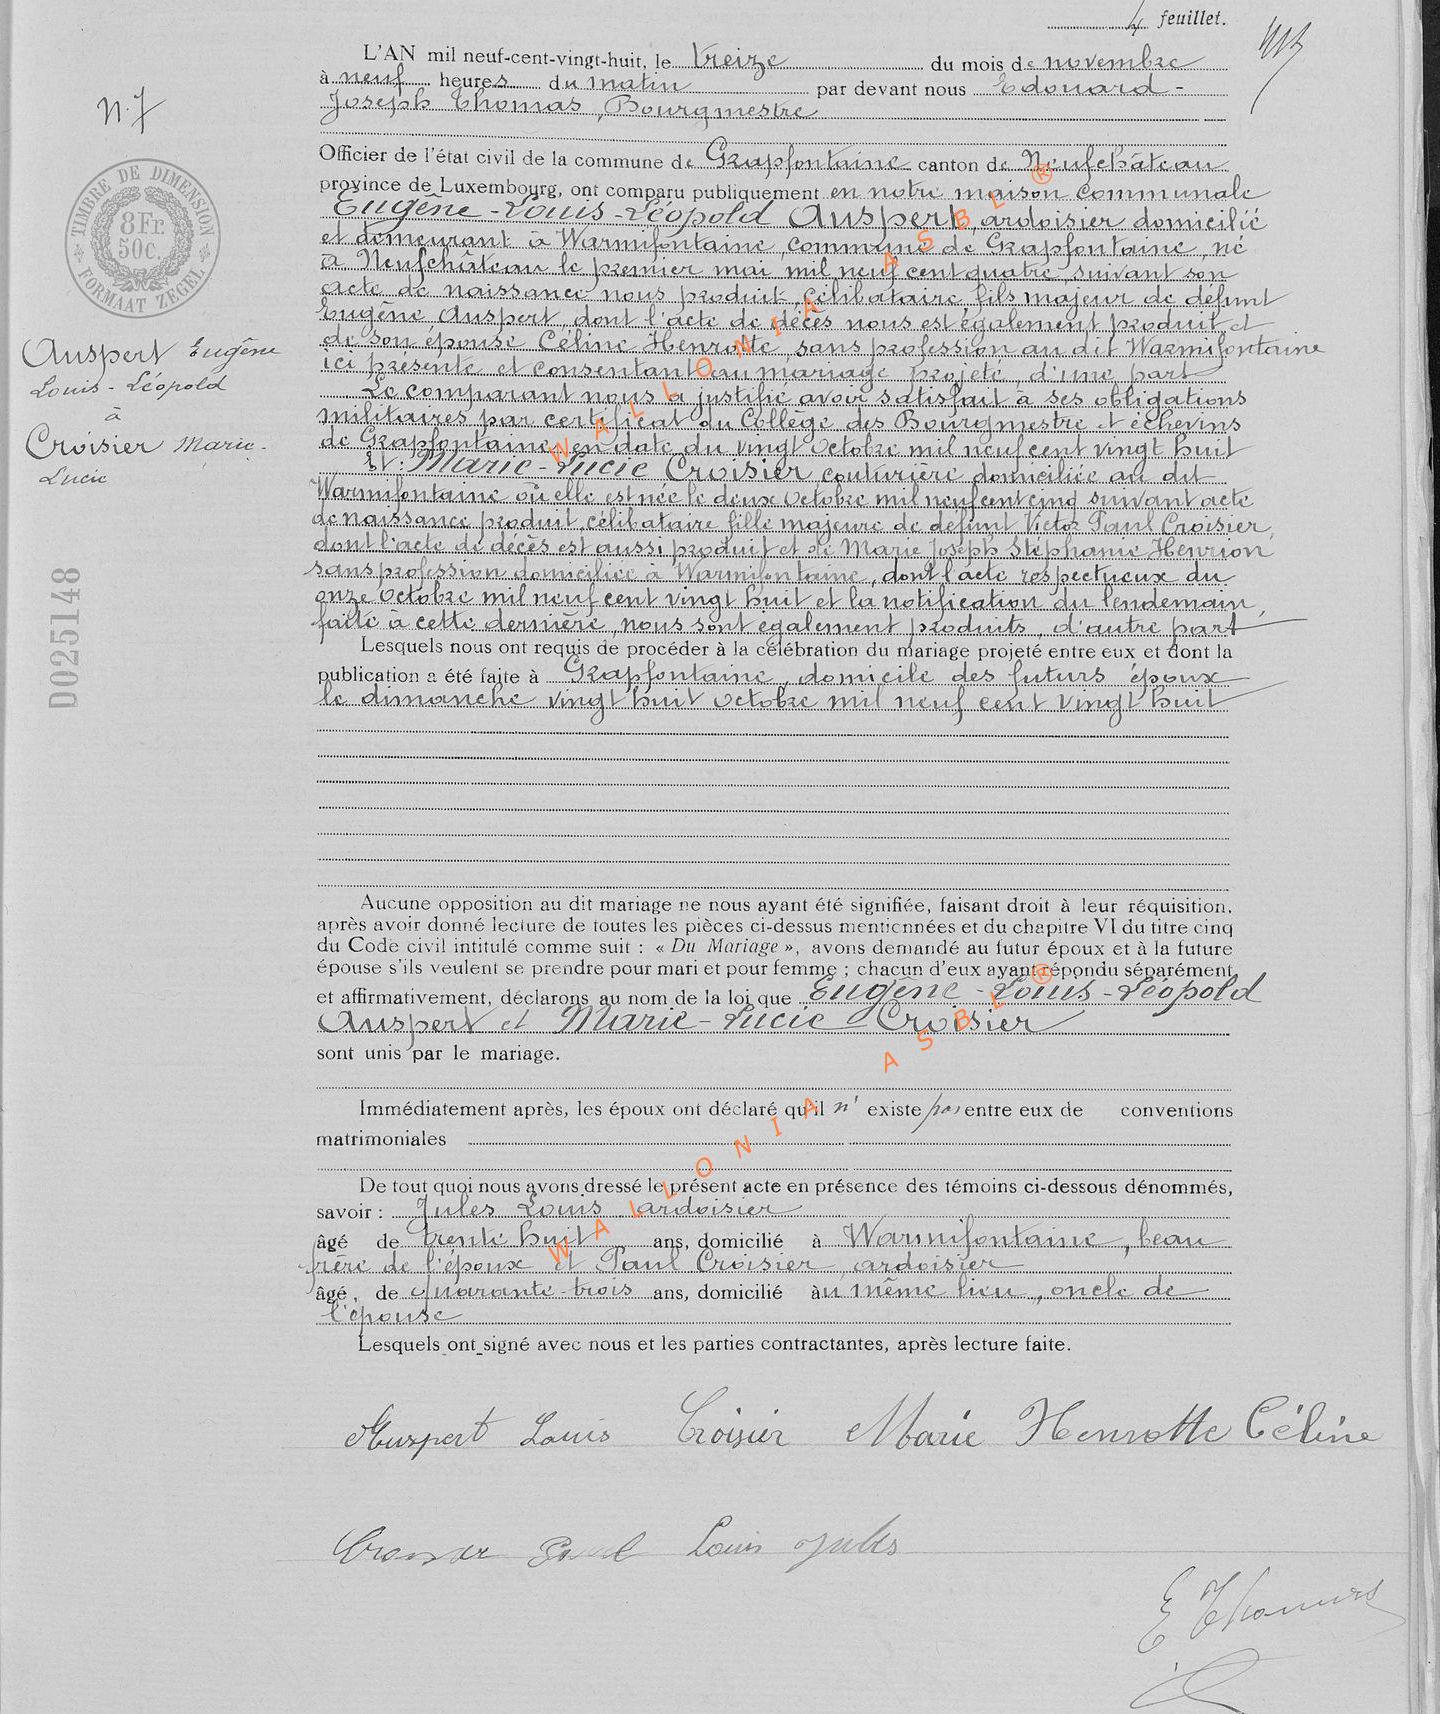 4 feuillet.
L'AN mil neuf-cent-vingt-huit, le treize du mois de novembre
à neuf heures du matin par devant nous Edouard -
Joseph Thomas, Bourgmestre
N. 7
Officier de l'état civil de la commune de Grapfontaine canton de Neufchâteau
province de Luxembourg, ont comparu publiquement en notre maison communale
Eugène-Louis-Léopold Auspert, ardoisier domicilié
et demeurant à Warmifontaine, commune de Grapfontaine, né
à Neufchâteau le premier mai mil neuf cent quatre, suivant son
acte de naissance nous produit, célibataire fils majeur de défunt
Eugène Auspert, dont l'acte de décès nous est également produit, et
de son épouse Céline Henrotte, sans profession au dit Warmifontaine
ici présente et consentant au mariage projeté, d'une part
Le comparant nous a justifié avoir satisfait à ses obligations
militaires par certificat du Collège des Bourgmestre et échevins
de Grapfontaine, en date du vingt octobre mil neuf cent vingt huit
Et : Marie-Lucie Croisier, couturière domiciliée au dit
Warmifontaine où elle est née le deux octobre mil neuf cent cinq suivant acte
de naissance produit, célibataire fille majeure de défunt Victor Paul Croisier,
dont l'acte de décès est aussi produit et de Marie Joseph Stéphanie Henrion
sans profession domiciliée à Warmifontaine, dont l'acte respectueux du
onze octobre mil neuf cent vingt huit et la notification du lendemain,
faite à cette dernière, nous sont également produits, d'autre part
Lesquels nous ont requis de procéder à la célébration du mariage projeté entre eux et dont la
publication a été faite à Grapfontaine, domicile des futurs époux
le dimanche vingt huit octobre mil neuf cent vingt huit
TIMBRE DE DIMENSION
8 Fr.
50c.
FORMAAT ZEGEL
Auspert Eugène
Louis-Léopold
à
Croisier Marie-
Lucie
D025148
Aucune opposition au dit mariage ne nous ayant été signifiée, faisant droit à leur réquisition,
après avoir donné lecture de toutes les pièces ci-dessus mentionnées et du chapitre VI du titre cinq
du Code civil intitulé comme suit : « Du Mariage », avons demandé au futur époux et à la future
épouse s'ils veulent se prendre pour mari et pour femme ; chacun d'eux ayant répondu séparément
et affirmativement, déclarons au nom de la loi que Eugène-Louis-Léopold
Auspert et Marie-Lucie Croisier
sont unis par le mariage.
Immédiatement après, les époux ont déclaré qu'il n' existe pas entre eux de conventions
matrimoniales
De tout quoi nous avons dressé le présent acte en présence des témoins ci-dessous dénommés,
savoir : Jules Louis ardoisier
âgé de trente huit ans, domicilié à Warmifontaine, beau
frère de l'époux et Paul Croisier, ardoisier
âgé, de quarante-trois ans, domicilié au même lieu, oncle de
l'épouse
Lesquels ont signé avec nous et les parties contractantes, après lecture faite.
Auspert Louis Croisier Marie Henrotte Céline
Croisier Paul Louis Jules
E Thomas
WALLONIA ASBL ®
WALLONIA ASBL ®